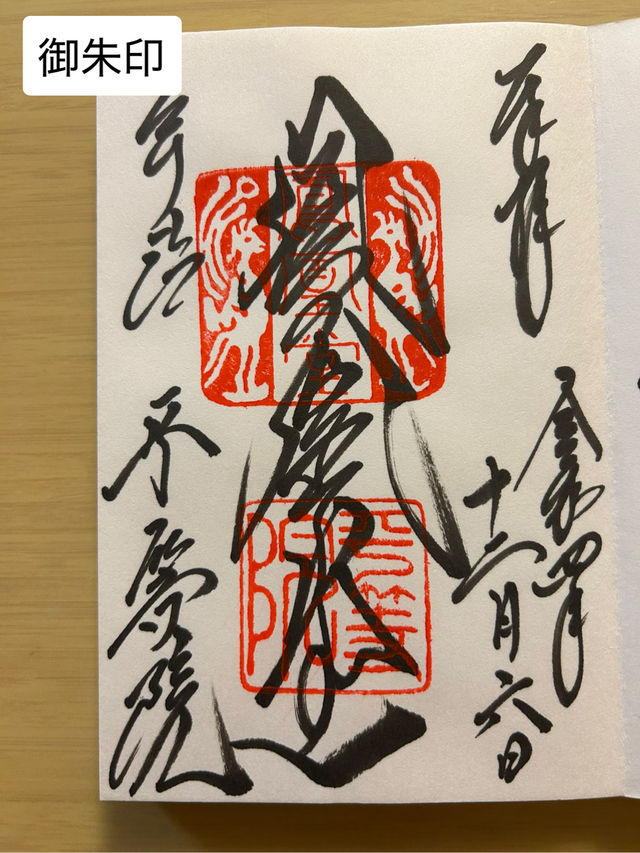 御朱印
奉拝
令和四年
十二月六日
鳳凰堂
宇治
平等院
平等院